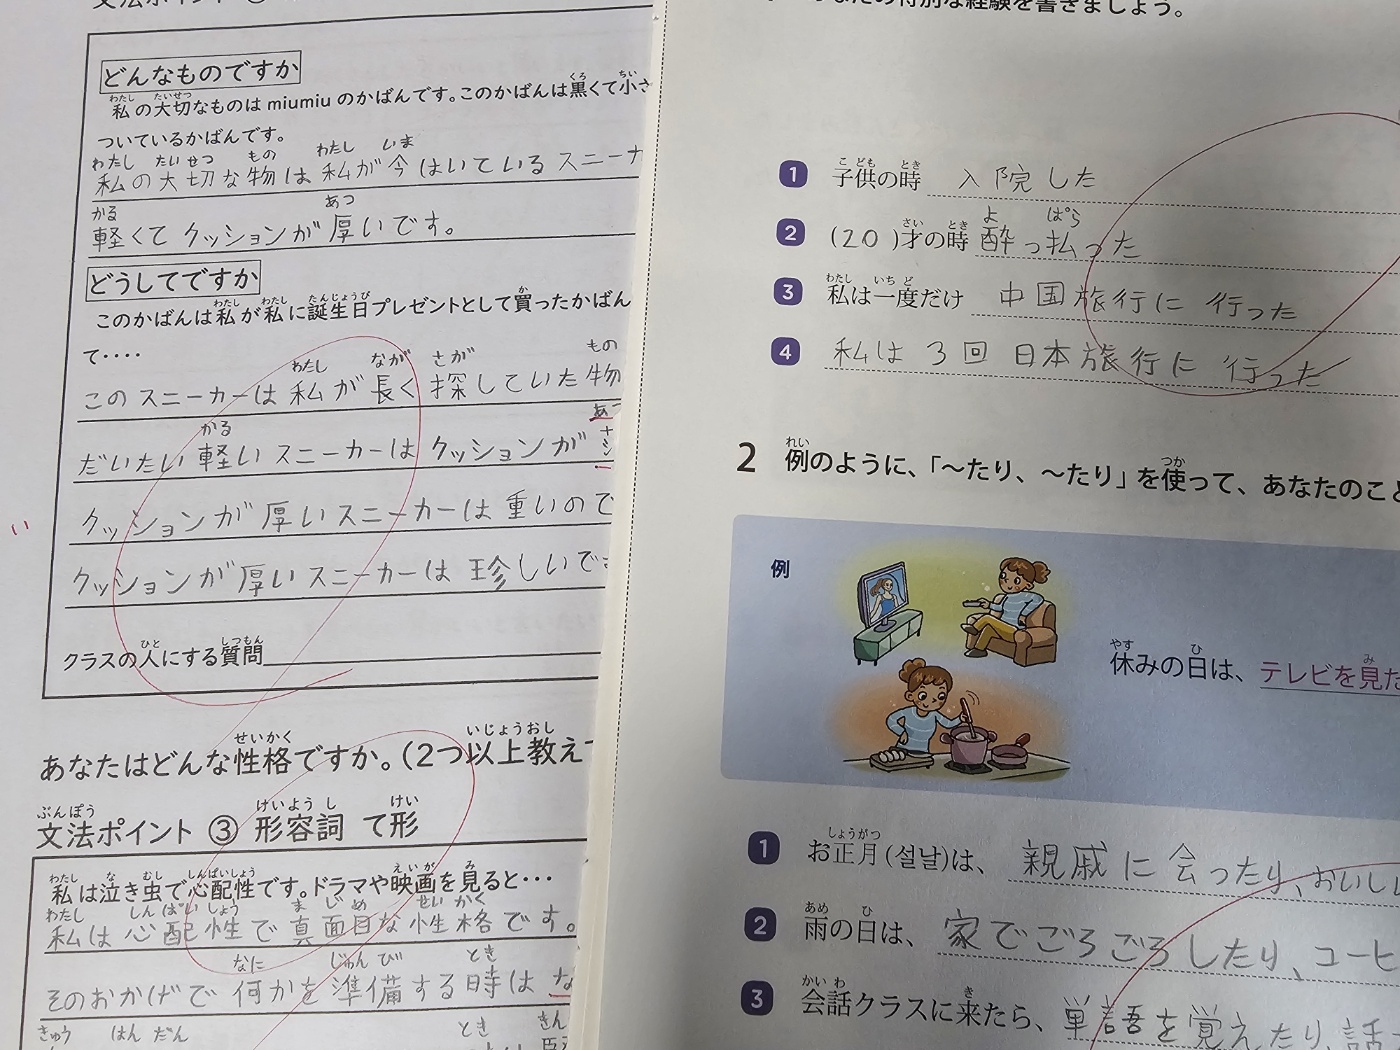 文法ポイント
どんなものですか
私の大切なものは miumiu のかばんです。このかばんは黒くて小さ
ついているかばんです。
私の大切な物は私が今はいているスニーカ
軽くてクッションが厚いです。
どうしてですか
このかばんは私が私に誕生日プレゼントとして買ったかばん
て‥‥
このスニーカーは私が長く探していた物
だいたい軽いスニーカーはクッションが
クッションが厚いスニーカーは重いので
クッションが厚いスニーカーは珍しいで
クラスの人にする質問
あなたはどんな性格ですか。(2つ以上教えて
文法ポイント ③ 形容詞 て形
私は泣き虫で心配性です。ドラマや映画を見ると‥‥
私は心配性で真面目な性格です。
そのおかげで何かを準備する時は な
きゅう はん だん とき きん
な特別な経験を書きましょう。
1 子供の時 入院した
2 (20)才の時 酔っ払った
3 私は一度だけ 中国旅行に 行った
4 私は3回日本旅行に 行った
2 例のように、「～たり、～たり」を使って、あなたのこと
例
休みの日は、テレビを見た
1 お正月(설날)は、親戚に会ったり、おいしい
2 雨の日は、家でごろごろしたり、コーヒ
3 会話クラスに来たら、単語を覚えたり、話